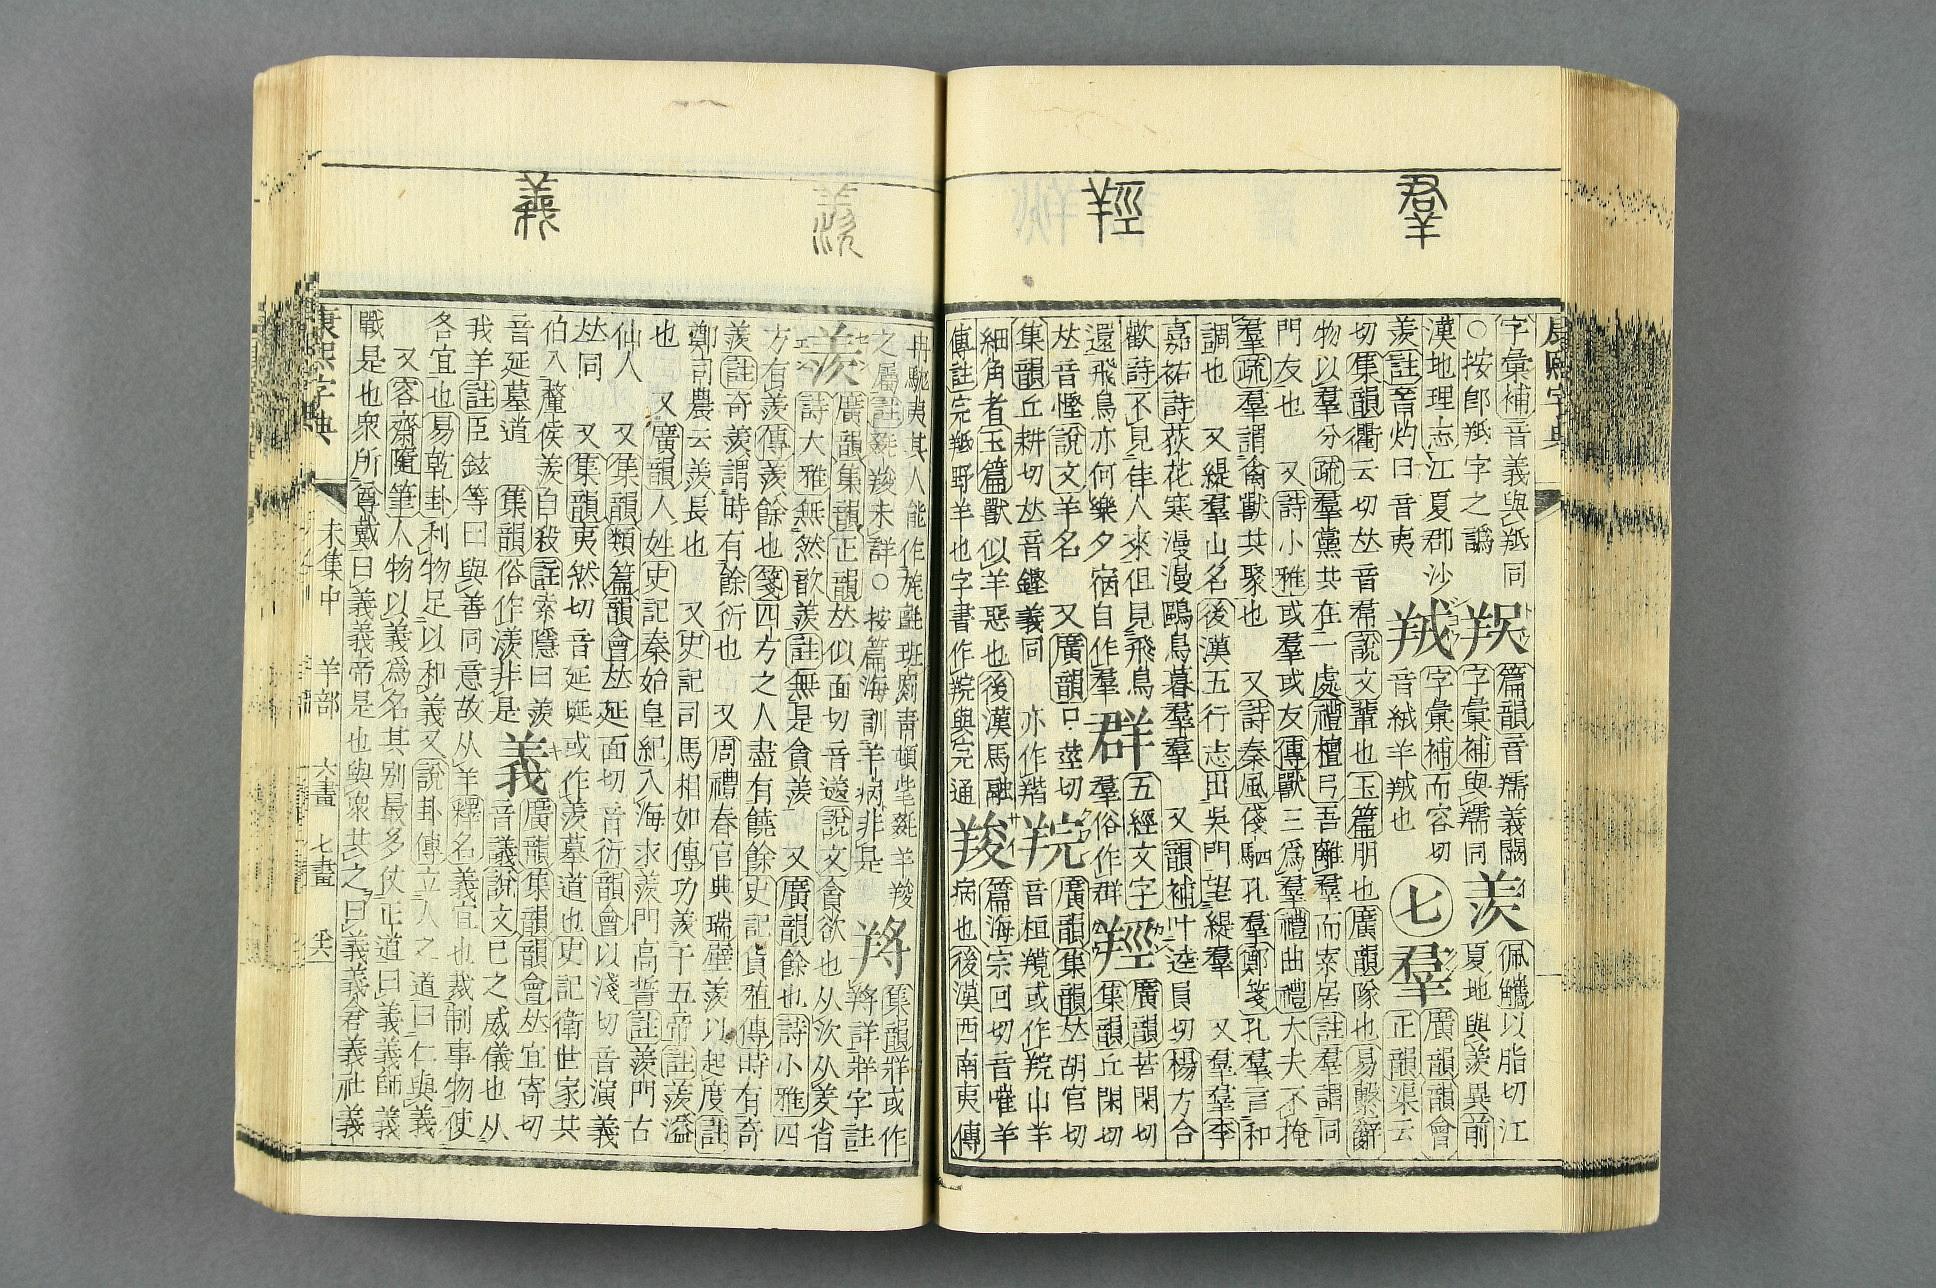 羣
羥
羨
義
康熙字典
字彙補音義與羝同
○按卽羝字之譌
篇韻音羺義闕
字彙補與羺同
羡
佩觿以脂切江
夏地與羨異前
漢地理志江夏郡沙
羨註音灼曰音夷
羢
字彙補而容切
音絨羊羢也
七
羣
廣韻韻會
正韻渠云
切集韻衢云切𠀤音帬說文輩也玉篇朋也廣韻隊也易繫辭
物以羣分疏羣黨共在一處禮檀弓吾離羣而索居註羣謂同
門友也 又詩小雅或羣或友傳獸三爲羣禮曲禮大夫不掩
羣疏羣謂禽獸共聚也 又詩秦風俴駟孔羣鄭箋孔羣言和
調也 又緹羣山名後漢五行志出吳門望緹羣 又羣羣李
嘉祐詩荻花寒漫漫鷗鳥暮羣羣 又韻補叶逵員切楊方合
歡詩不見佳人來但見飛鳥
還飛鳥亦何樂夕宿自作羣
群
五經文字
羣俗作群
羥
廣韻苦閑切
集韻丘閑切
𠀤音慳說文羊名 又廣韻口莖切
集韻丘耕切𠀤音鏗義同 亦作䍒
羦
廣韻集韻𠀤胡官切
音桓羱或作羦山羊
細角者玉篇獸似羊惡也後漢馬融
傳註完羝野羊也字書作羦與完通
羧
篇海宗回切音嗺羊
病也後漢西南夷傳
冉駹夷其人能作旄氈班罽靑頓毞毲羊羧
之屬註毲羧未詳○按篇海訓羊病非是
䍮
集韻牂或作
䍮詳牂字註
羨
廣韻集韻正韻𠀤似面切音𨗭說文貪欲也从次从羑省
詩大雅無然歆羨註無是貪羨 又廣韻餘也詩小雅四
方有羨傳羨餘也箋四方之人盡有饒餘史記貨殖傳時有奇
羨註奇羨謂時有餘衍也 又周禮春官典瑞璧羨以起度註
鄭司農云羨長也 又史記司馬相如傳功羨于五帝註羨溢
也 又廣韻人姓史記秦始皇紀入海求羨門高誓註羨門古
仙人 又集韻類篇韻會𠀤延面切音衍韻會以淺切音演義
𠀤同 又集韻夷然切音延㢟或作羨墓道也史記衛世家共
伯入釐侯羨自殺註索隱曰羨
音延墓道 集韻俗作漾非是
義
廣韻集韻韻會𠀤宜寄切
音議說文己之威儀也从
我羊註臣鉉等曰與善同意故从羊釋名義宜也裁制事物使
各宜也易乾卦利物足以和義又說卦傳立人之道曰仁與義
又容齋隨筆人物以義爲名其别最多仗正道曰義義師義
戰是也衆所尊戴曰義義帝是也與衆共之曰義義倉義社義
康熙字典
未集中 羊部 六畫 七畫